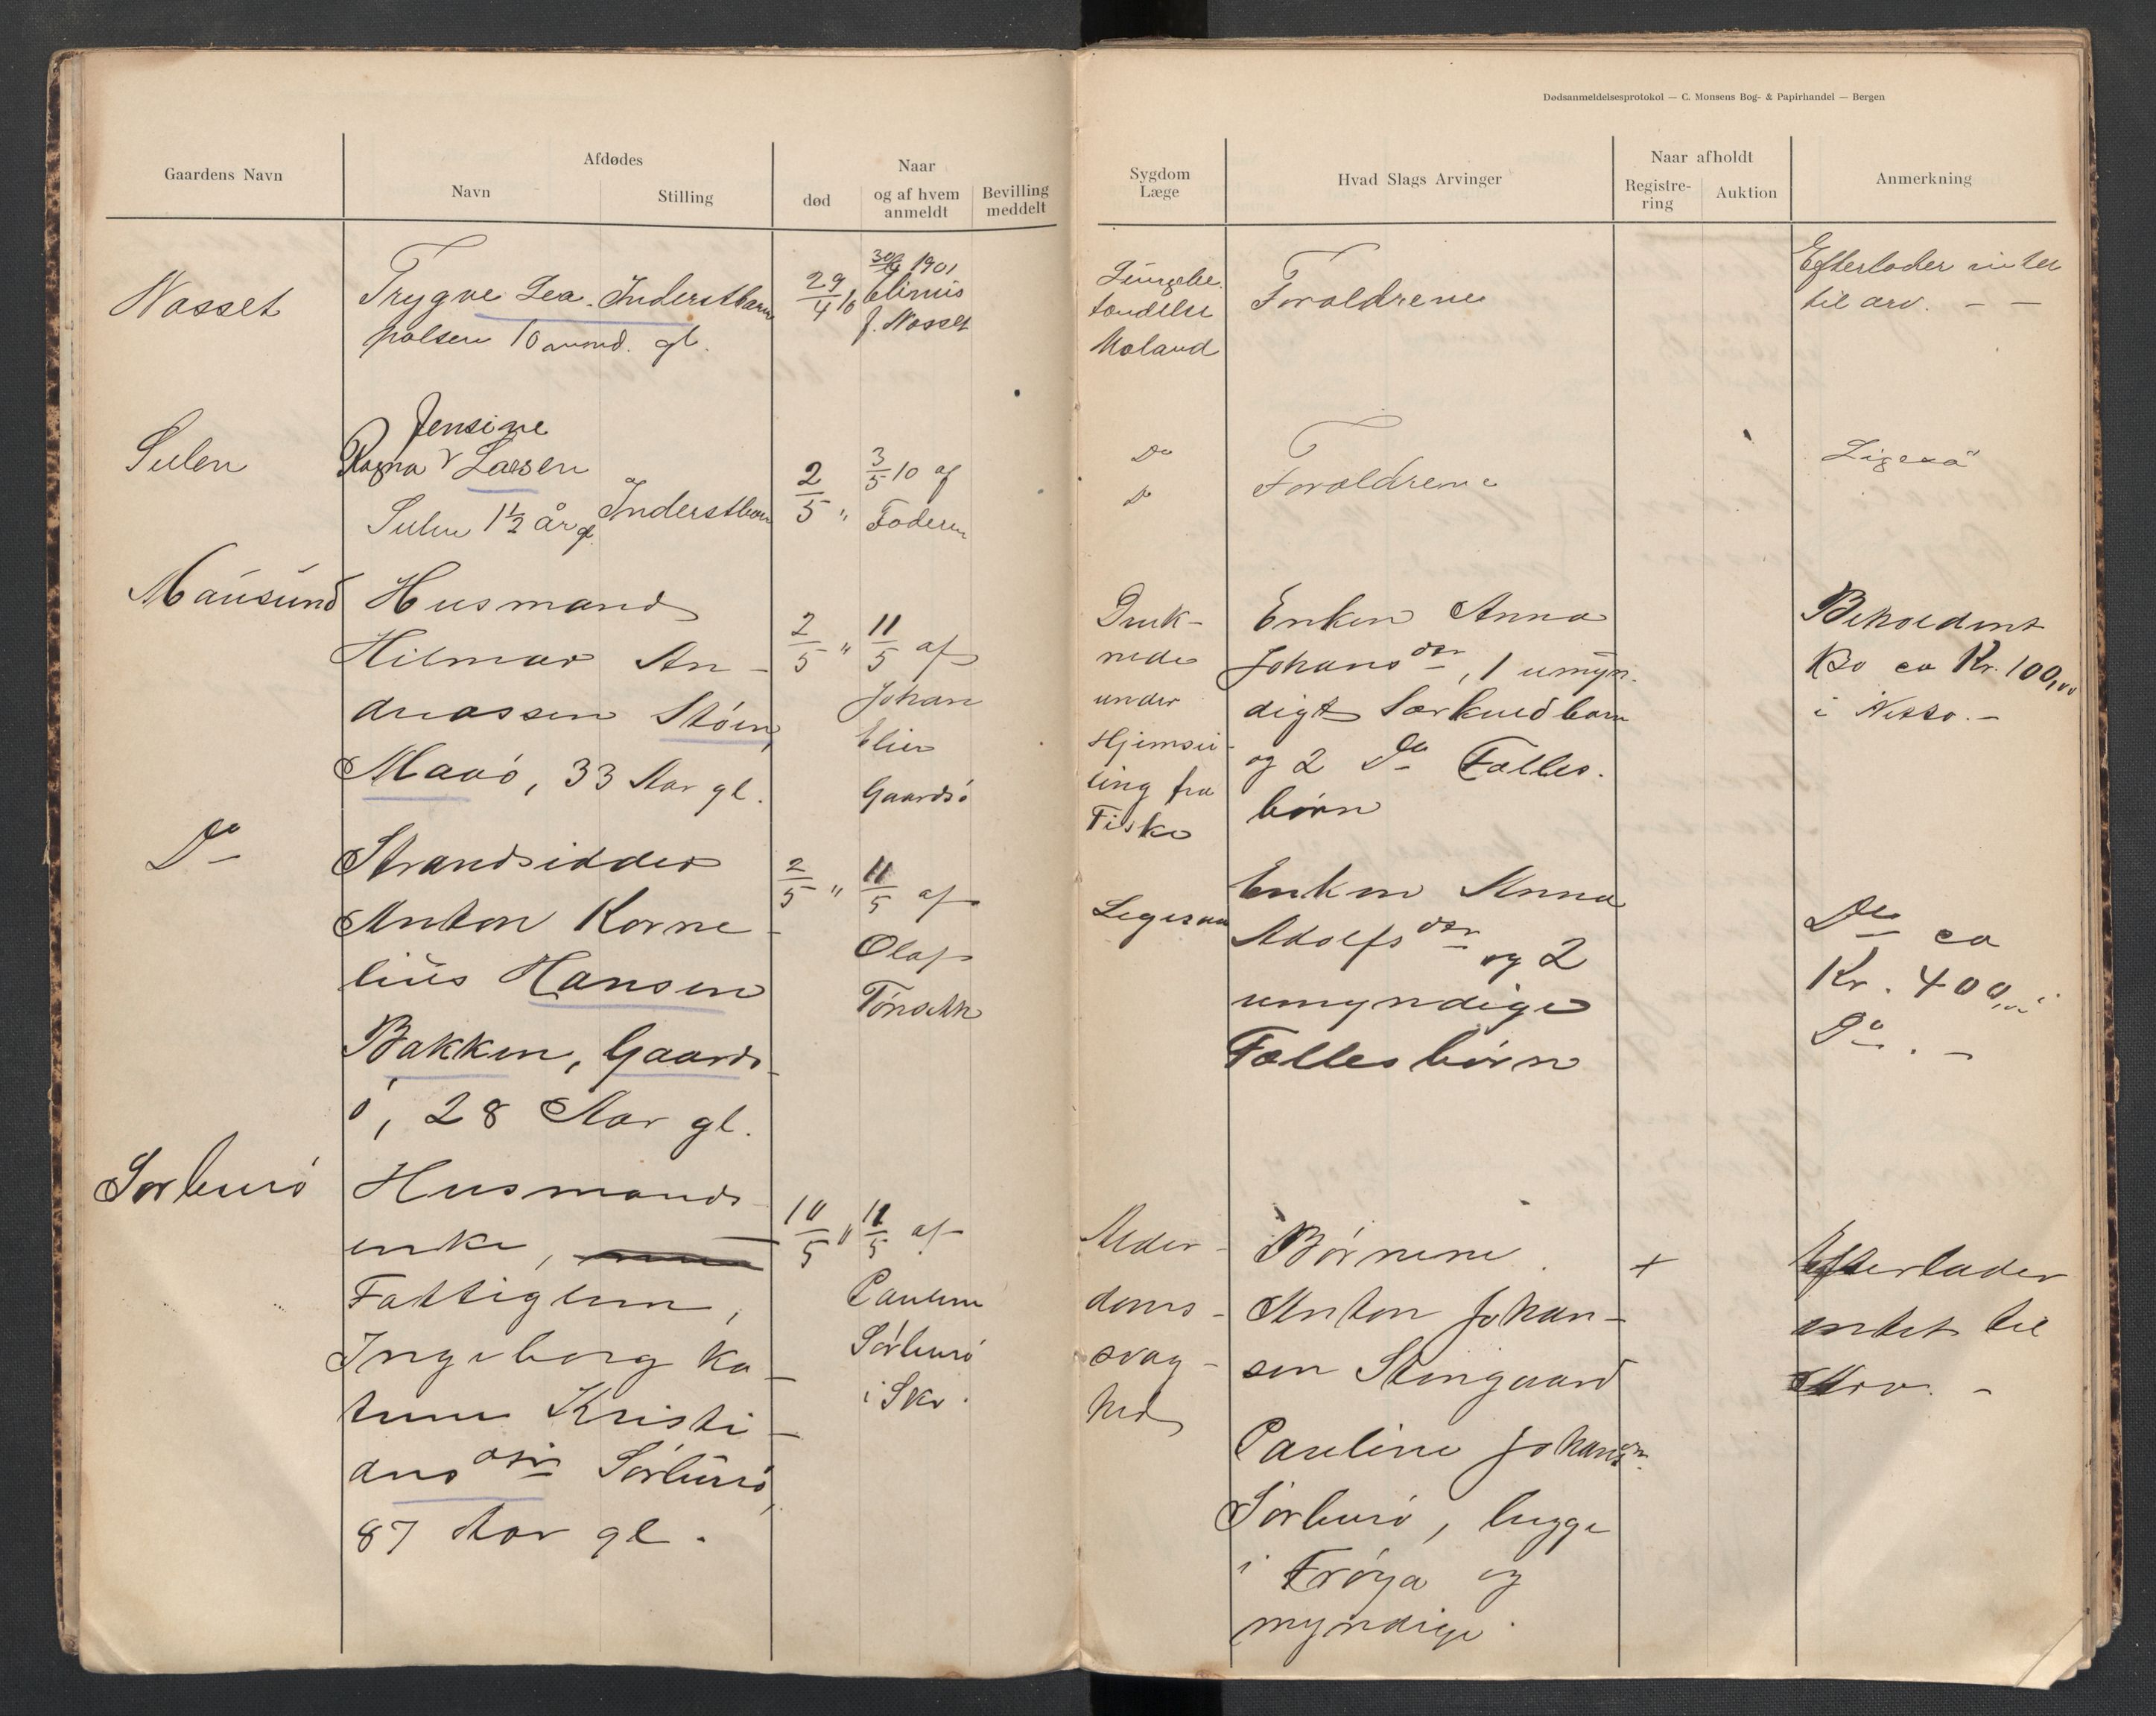 Dødsanmeldelsesprotokol — C. Monsens Bog- & Papirhandel — Bergen
Gaardens Navn
Afdødes
Navn
Stilling
død
Naar
og af hvem
anmeldt
Bevilling
meddelt
Sygdom
Læge
Hvad Slags Arvinger
Naar afholdt
Registre-
ring
Auktion
Anmerkning
Nasset
Trygve Lea- Inderstbarn
polsen 10 gl.
29/4 10
30/4 1901
J. Nasset
tændelse
Moland
Forældrene
Efterlader intet
til arv. — —
Sulen
Jensine
Ragna Larsen
Sulen 1½ år gl. Inderstbarn
2/5 "
3/5 10 af
Faderen
Do
Do
Forældrene
Ligeså
Mausund
Husmand
Hilmar An-
dreassen Støen,
Maaö, 33 Aar gl.
2/5 "
11/5 af
Johan
Elias
Gaardsö
Druk-
nede
under
Hjemsei-
ling fra
Fiske
Enken Anna
Johansdtr, 1 umyn-
digt Særkuldbarn
og 2 Do Fælles-
børn
Beholdent
Bo ca Kr. 100,00
i Netto. —
Do
Strandsidder
Anton Korne-
lius Hansen
Bakken, Gaards-
ö, 28 Aar gl.
2/5 "
11/5 af
Olaf
Ligesaa
Enken Anna
Adolfsdtr og 2
umyndige
Fællesbørn
Do ca
Kr. 400,00 i
Do. —
Sørburö
Husmands-
enke,
Fattiglem,
Ingeborg Ka-
trine Kristi-
ansdtr Sørburö,
87 Aar gl.
10/5 "
11/5 af
Pauline
Sørburö
i Skr.
Alder-
doms-
svag-
hed
Børnene
Anton Johan-
sen Stengaard
Pauline Johansdtr.
Sørburö, begge
i Frøya og
myndige.
+
Efterlader
intet til
Arv. —